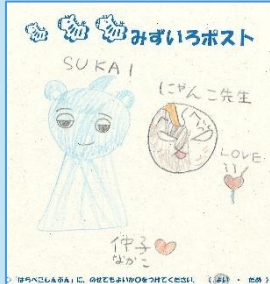 みずいろポスト
SUKAI
にゃんこ先生
LOVE
仲子
なかこ
「はらぺこしんぶん」に、のせてもよいか○をつけてください。 （よい ・ だめ）